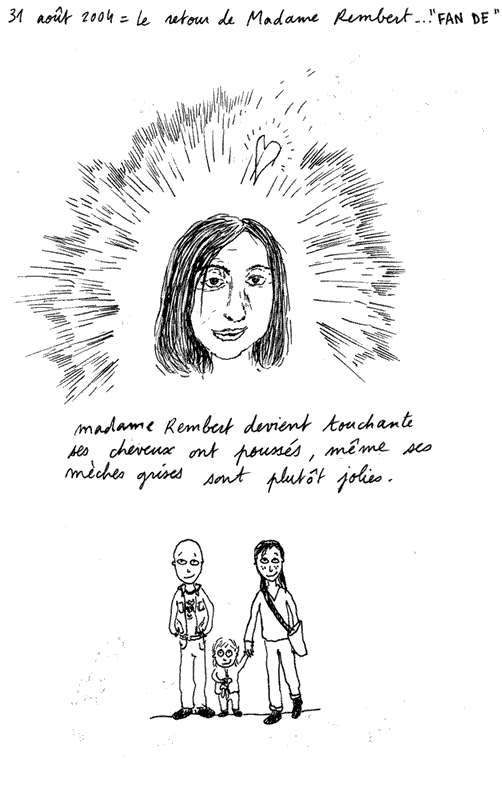 31 août 2004 = le retour de Madame Rembert... "FAN DE"
madame Rembert devient touchante
ses cheveux ont poussés, même ses
mèches grises sont plutôt jolies.